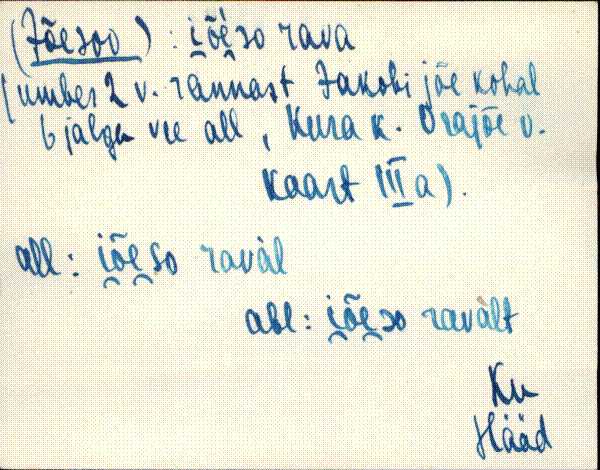 (Jõesoo) : i̯õe̯'so rava
(umbes 2 v. rannast Jakobi jõe kohal
6 jalga vee all, Kura k. Orajõe v.
Kaart III a).
all: i̯õe̯so ravàl
abl: i̯õe̯so ravàlt
Hääd